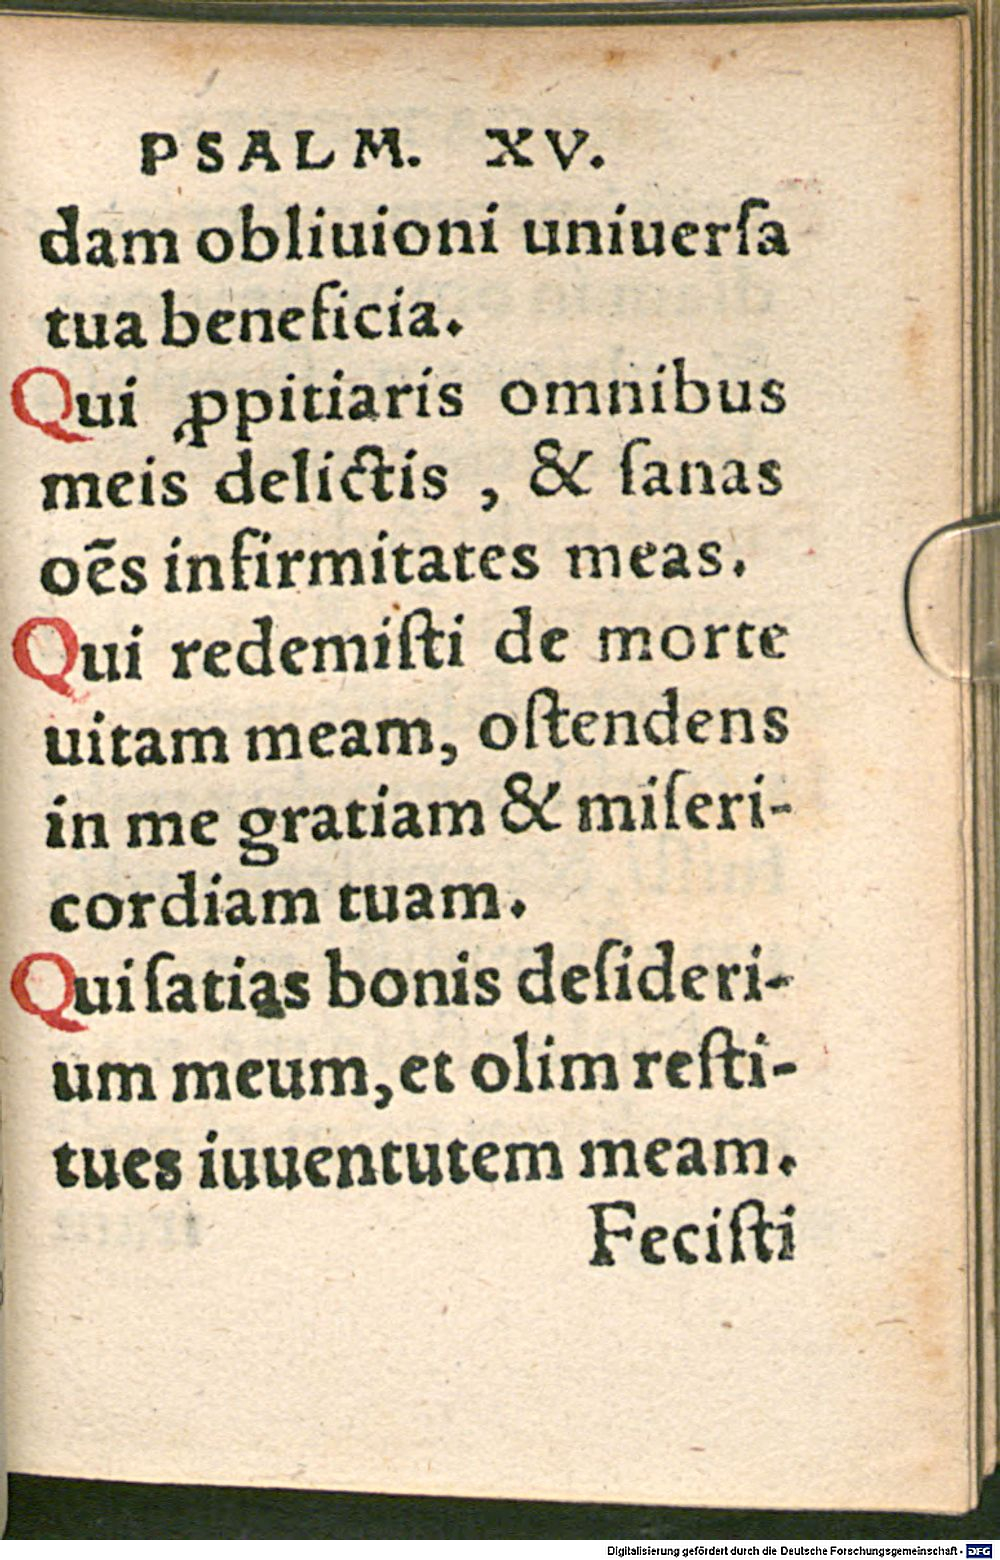 PSALM. XV.
dam obliuioni uniuerſa
tua beneficia.
Qui ꝓpitiaris omnibus
meis delictis , & ſanas
oēs infirmitates meas.
Qui redemiſti de morte
uitam meam, oſtendens
in me gratiam & miſeri-
cordiam tuam.
Qui ſatias bonis deſideri-
um meum, et olim reſti-
tues iuuentutem meam.
Feciſti
Digitalisierung gefördert durch die Deutsche Forschungsgemeinschaft - DFG